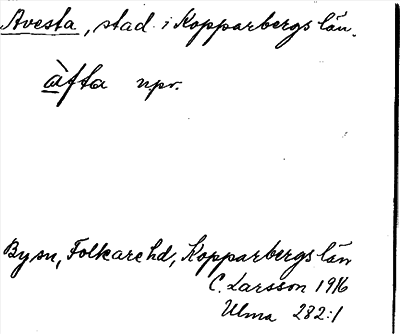 Avesta, stad i Kopparbergs län.
àfta npr.
By sn, Folkare hd, Kopparbergs län
C. Larsson 1916
Ulma 282:1